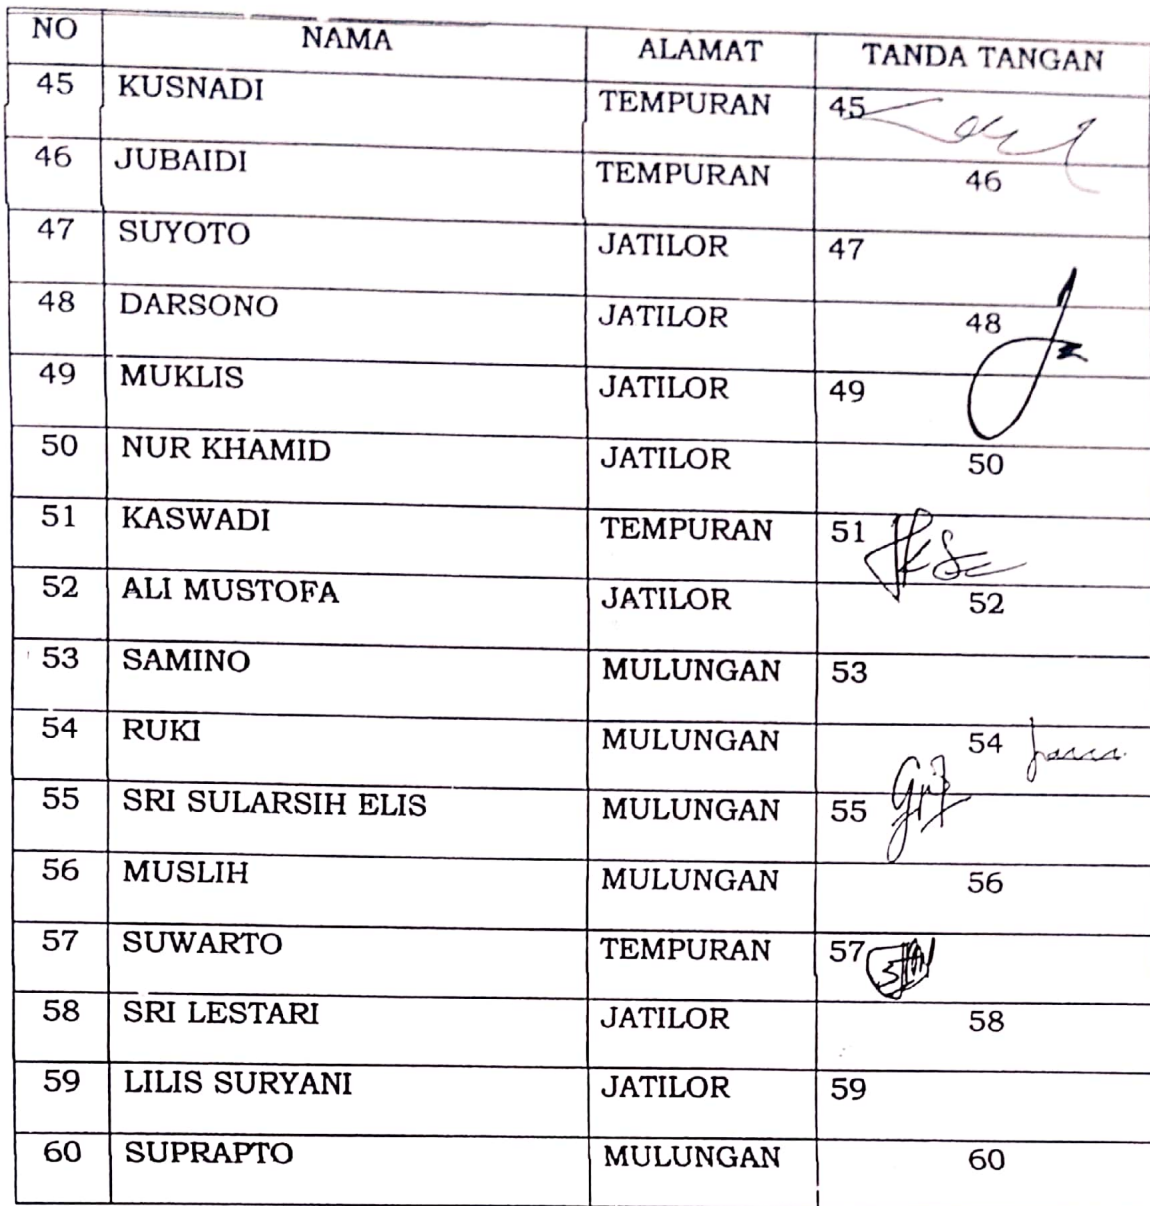 NO NAMA ALAMAT TANDA TANGAN
45 KUSNADI TEMPURAN 45
46 JUBAIDI TEMPURAN 46
47 SUYOTO JATILOR 47
48 DARSONO JATILOR 48
49 MUKLIS JATILOR 49
50 NUR KHAMID JATILOR 50
51 KASWADI TEMPURAN 51
52 ALI MUSTOFA JATILOR 52
53 SAMINO MULUNGAN 53
54 RUKI MULUNGAN 54
55 SRI SULARSIH ELIS MULUNGAN 55
56 MUSLIH MULUNGAN 56
57 SUWARTO TEMPURAN 57
58 SRI LESTARI JATILOR 58
59 LILIS SURYANI JATILOR 59
60 SUPRAPTO MULUNGAN 60